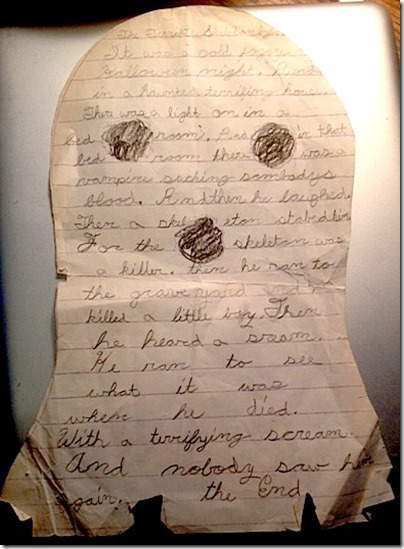 The
It was a cold
halloween night. And
in a haunted terrifing house.
There was a light on in a
bed room. And in that
bed room there was a
vampire sucking sombodys
blood. And then he laughed.
Then a skeleton stabed him
For the skeleton was
a killer. then he ran to
the graveyard and
killed a little boy. Then
he heard a sream.
He ran to see
what it was
when he died.
With a terrifying scream.
And nobody saw him
again. the End